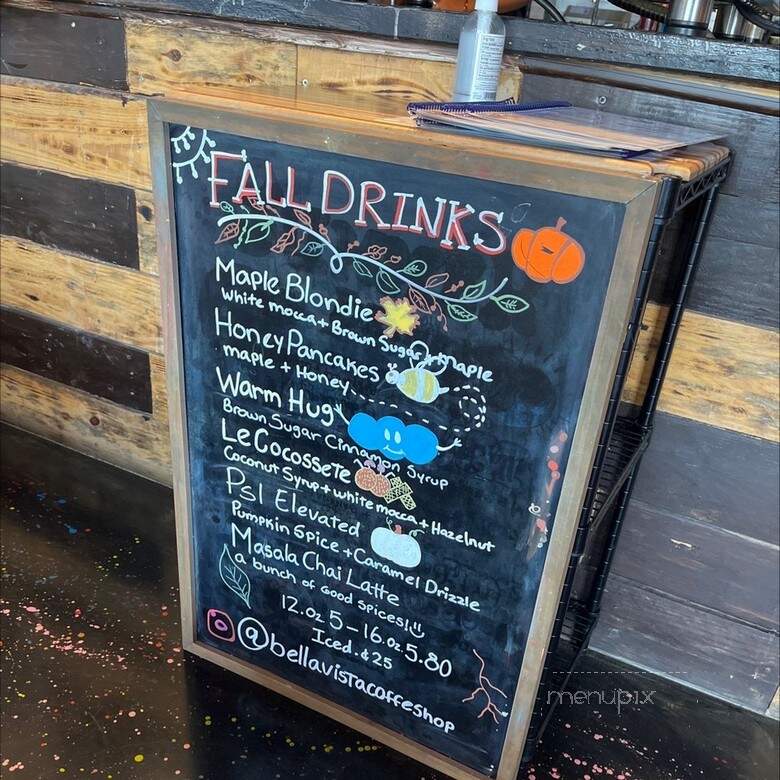 FALL DRINKS
Maple Blondie
White mocca + Brown Sugar + maple
Honey Pancakes
maple + Honey
Warm Hug
Brown Sugar Cinnamon Syrup
Le Cocossete
Coconut Syrup + white mocca + Hazelnut
Psl Elevated
Pumpkin Spice + Caramel Drizzle
Masala Chai Latte
a bunch of Good spices!
12.oz 5 - 16.oz 5.80
Iced .$25
@bellavistacoffeshop
menupix